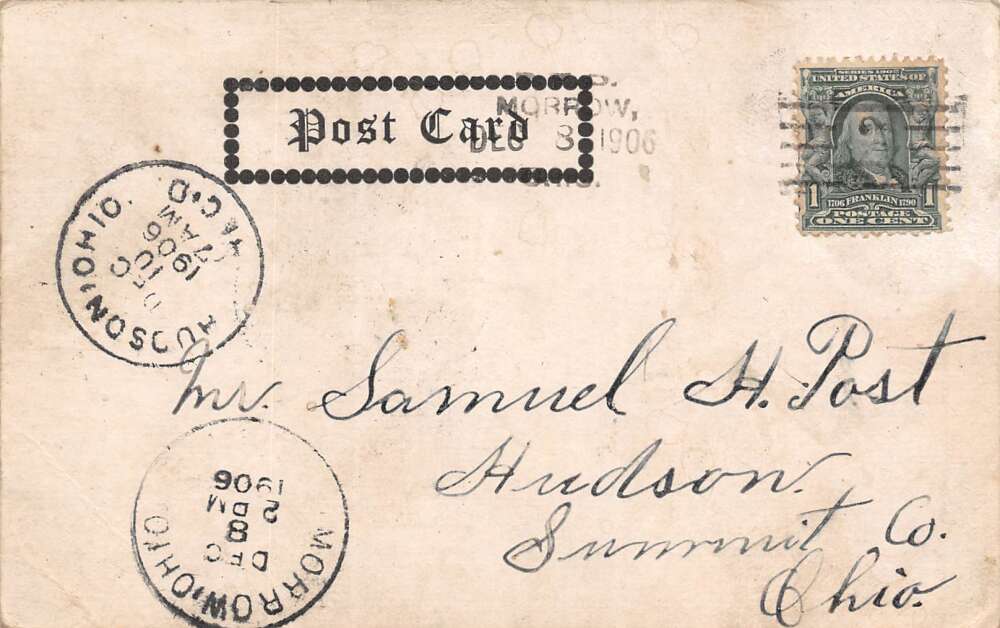 MORROW,
DEC 8 1906
Post Card
SERIES 1902
UNITED STATES OF
AMERICA
1 1706 FRANKLIN 1790 1
POSTAGE
ONE CENT
HUDSON, OHIO.
REC'D
DEC
10
7 AM
1906
Mr. Samuel H. Post
Hudson
Summit Co.
Ohio.
MORROW, OHIO
DEC
8
2 PM
1906